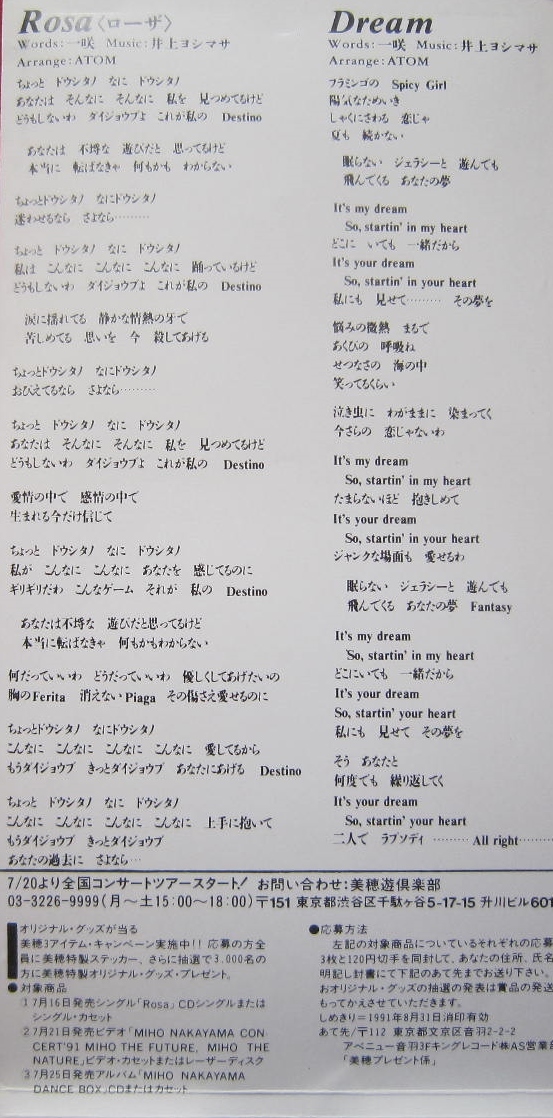 Rosa〈ローザ〉
Words:一咲 Music:井上ヨシマサ
Arrange:ATOM
ちょっと ドウシタノ なに ドウシタノ
あなたは そんなに そんなに 私を 見つめてるけど
どうもしないわ ダイジョウブよ これが私の Destino
あなたは 不埒な 遊びだと 思ってるけど
本当に 転ばなきゃ 何もかも わからない
ちょっとドウシタノ なにドウシタノ
迷わせるなら さよなら………
ちょっと ドウシタノ なに ドウシタノ
私は こんなに こんなに こんなに 踊っているけど
どうもしないわ ダイジョウブよ これが私の Destino
涙に揺れてる 静かな情熱の牙で
苦しめてる 思いを 今 殺してあげる
ちょっとドウシタノ なにドウシタノ
おびえてるなら さよなら………
ちょっと ドウシタノ なに ドウシタノ
あなたは そんなに そんなに 私を 見つめてるけど
どうもしないわ ダイジョウブよ これが私の Destino
愛情の中で 感情の中で
生まれる今だけ信じて
ちょっと ドウシタノ なに ドウシタノ
私が こんなに こんなに あなたを 感じてるのに
ギリギリだわ こんなゲーム それが 私の Destino
あなたは不埒な 遊びだと思ってるけど
本当に転ばなきゃ 何もかもわからない
何だっていいわ どうだっていいわ 優しくしてあげたいの
胸のFerita 消えないPiaga その傷さえ愛せるのに
ちょっとドウシタノ なにドウシタノ
こんなに こんなに こんなに こんなに 愛してるから
もうダイジョウブ きっとダイジョウブ あなたにあげる Destino
ちょっと ドウシタノ なに ドウシタノ
こんなに こんなに こんなに こんなに 上手に抱いて
もうダイジョウブ きっとダイジョウブ
あなたの過去に さよなら…
Dream
Words:一咲 Music:井上ヨシマサ
Arrange:ATOM
フラミンゴの Spicy Girl
陽気なためいき
しゃくにさわる 恋じゃ
夏も 続かない
眠らない ジェラシーと 遊んでも
飛んでくる あなたの夢
It's my dream
So, startin' in my heart
どこに いても 一緒だから
It's your dream
So, startin' in your heart
私にも 見せて……… その夢を
悩みの微熱 まるで
あくびの 呼吸ね
せつなさの 海の中
笑ってるくらい
泣き虫に わがままに 染まってく
今さらの 恋じゃないわ
It's my dream
So, startin' in my heart
たまらないほど 抱きしめて
It's your dream
So, startin' in your heart
ジャンクな場面も 愛せるわ
眠らない ジェラシーと 遊んでも
飛んでくる あなたの夢 Fantasy
It's my dream
So, startin' in my heart
どこにいても 一緒だから
It's your dream
So, startin' your heart
私にも 見せて その夢を
そう あなたと
何度でも 繰り返してく
It's your dream
So, startin' your heart
二人で ラプソディ ……… All right………
7/20より全国コンサートツアースタート! お問い合わせ:美穂遊倶楽部
03-3226-9999(月〜土15:00〜18:00)〒151 東京都渋谷区千駄ヶ谷5-17-15 升川ビル601
オリジナル・グッズが当る
美穂3アイテム・キャンペーン実施中!! 応募の方全
員に美穂特製ステッカー、さらに抽選で3,000名の
方に美穂特製オリジナル・グッズ・プレゼント。
●対象商品
①7月16日発売シングル「Rosa」CDシングルまたは
シングル・カセット
②7月21日発売ビデオ「MIHO NAKAYAMA CON-
CERT'91 MIHO THE FUTURE, MIHO THE
NATURE」ビデオ・カセットまたはレーザーディスク
③7月25日発売アルバム「MIHO NAKAYAMA
DANCE BOX」CDまたはカセット
●応募方法
左記の対象商品についているそれぞれの応募
3枚と120円切手を同封して、あなたの住所、氏名
明記し封書にて下記のあて先までお送り下さい。
おオリジナル・グッズの抽選の発表は賞品の発送
もってかえさせていただきます。
しめきり=1991年8月31日消印有効
あて先/〒112 東京都文京区音羽2-2-2
アベニュー音羽3Fキングレコード㈱AS営業部
「美穂プレゼント係」